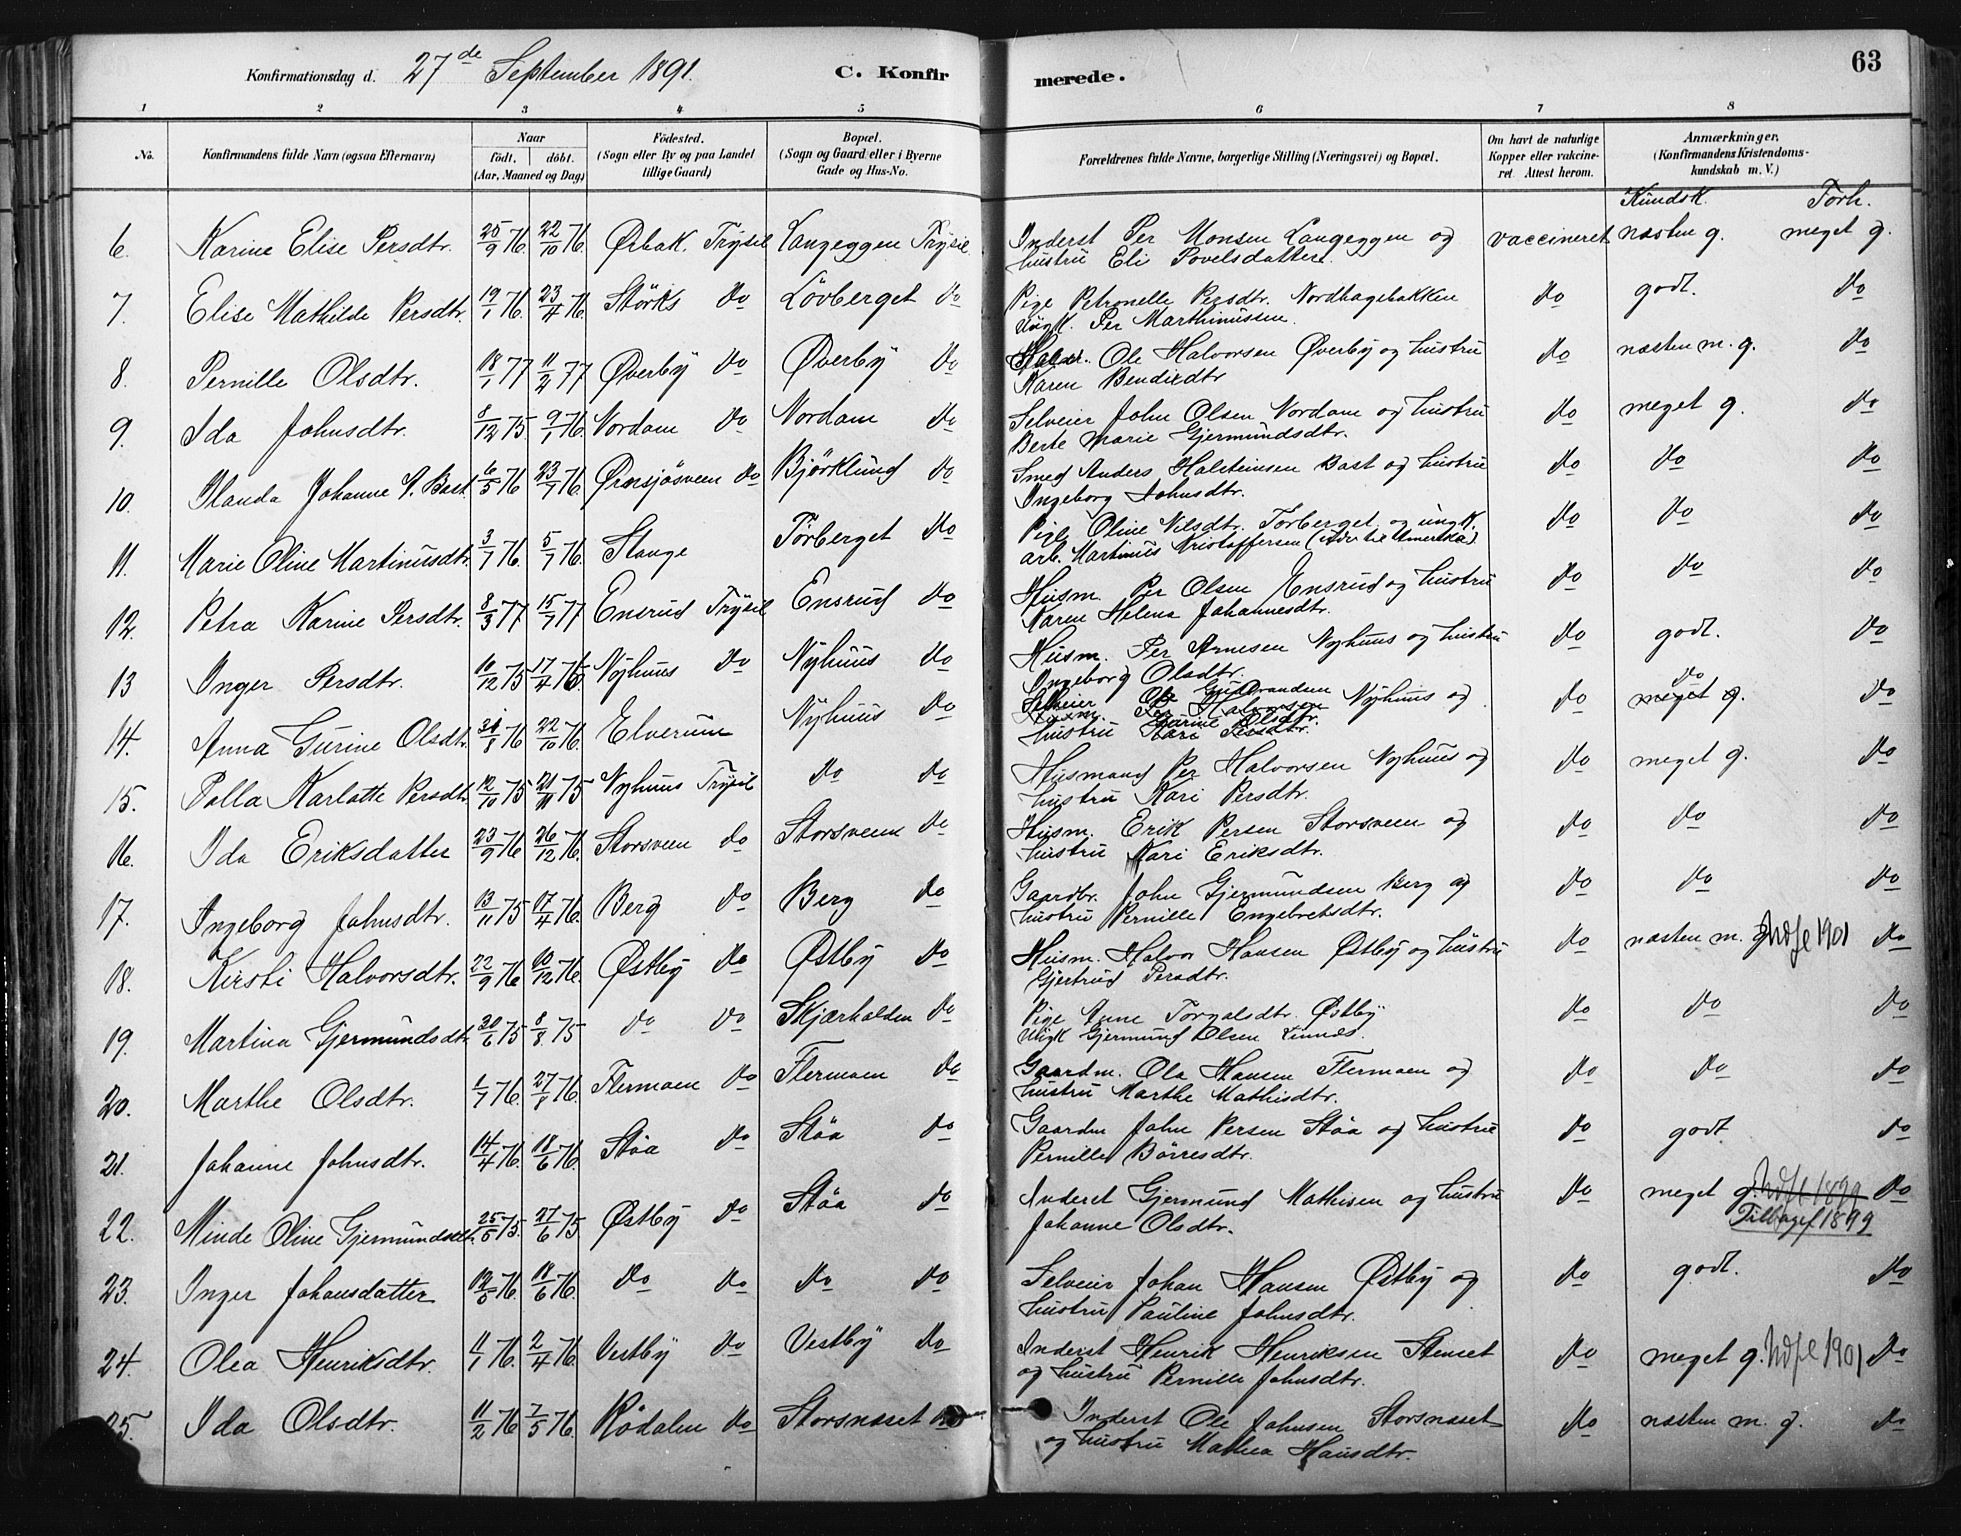 63
Konfirmationsdag d. 27de September 1891. C. Konfirmerede.
1 2 3 4 5 6 7 8
No. Konfirmandens fulde Navn (ogsaa Efternavn) Naar født. døbt. (Aar, Maaned og Dag) Fødested. (Sogn eller By og paa Landet tillige Gaard) Bopæl. (Sogn og Gaard eller i Byerne Gade og Hus-No. Forældrenes fulde Navne, borgerlige Stilling (Næringsvei) og Bopæl. Om havt de naturlige Kopper eller vakcineret. Attest herom. Anmærkninger. (Konfirmandens Kristendomskundskab m. V.)
Kundsk. Forh.
6. Karine Elise Persdtr. 25/9 76. 22/10 76. Ørbak. Trysil Langeggen Trysil Inderst Per Monsen Langeggen og vaccineret næsten g. meget g.
hustru Eli Povelsdatter
7. Elise Mathilde Persdtr. 19/1 76. 23/4 76. Störks do Lövberget do Pige Petronelle Persdtr. Nordhagebakken do godt. do
Ungk. Per Marthinussen.
8. Pernille Olsdtr. 18/1 77 11/2 77 Øverby do Øverby do Ole Halvorsen Øverby og hustru do næsten m. g. do
Karen Bendixdtr
9. Ida Johnsdtr. 8/12 75 9/1 76. Nordam do Nordam do Selveier John Olsen Nordam og hustru do meget g. do
Berte Marie Gjermundsdtr.
10. Johanne A. Bast 6/5 76 23/7 76. Ørnsjøsveen do Björklund do Smed Anders Halsteinsen Bast og hustru do do do
Ingeborg Johnsdtr.
11. Marie Oline Martinusdtr. 3/7 76. 5/7 76. Stange Törberget do Pige Oline Nilsdtr. Törberget og ungk. do do do
arb. Martinus Kristoffersen
12. Petra Karine Persdtr. 8/3 77 15/7 77 Ensrud Trysil Ensrud do Husm. Per Olsen Ensrud og hustru do do do
Karen Helena Johannesdtr.
13 Inger Persdtr. 10/12 75 17/4 76 Nyhuus do Nyhuus do Husm. Per Arnesen Nyhuus og hustru do godt. do
Ingeborg Olsdtr.
14. Anna Gurine Olsdtr. 31/8 76 22/10 76. Elverum Nyhuus do Selveier Ole Gulbrandsen Nyhuus og do do meget g. do
Husm. Per Halvorsen
hustru Karine Olsdtr. Kari Persdtr.
15. Polla Karlotte Persdtr. 12/10 75 21/11 75 Nyhuus Trysil do do Husmand Per Halvorsen Nyhuus og do meget g. do
hustru Kari Persdtr.
16. Ida Eriksdatter 23/9 76 26/12 76. Storsveen do Storsveen do Husm. Erik Persen Storsveen og do do do
hustru Kari Eriksdtr.
17. Ingeborg Johnsdtr. 13/11 75 17/4 76. Berg do Berg do Gaardbr. John Gjermundsen Berg og do do do
hustru Pernille Engebretsdtr.
18. Kirsti Halvorsdtr. 22/9 76 10/12 76. Østby do Østby do Husm. Halvor Hansen Østby og hustru do næsten m. g. Udfl 1901 do
Gjertrud Persdtr.
19. Martina Gjermundsdtr. 30/6 75 8/8 75 do do Skjærhalden do Pige Anne Torgalsdtr. Østby do do do
Ungk Gjermund Olsen Linnes.
20. Marthe Olsdtr. 1/7 76. 27/8 76. Flermoen do Flermoen do Gaardm. Ola Hansen Flermoen og do do do
hustru Marthe Mathisdtr.
21. Johanne Johnsdtr. 14/4 76. 18/6 76. Stöa do Stöa do Gaardm John Persen Stöa og hustru do godt do
Pernille Börresdtr.
22. Minde Oline Gjermundsdtr. 25/5 75. 27/6 75 Østby do Stöa do Inderst Gjermund Mathisen og hustru do meget g. Udfl 1899 do
Johanne Olsdtr. Tilbagefl 1899
23. Inger Johansdatter 12/5 76. 18/6 76. do do do do Selveier Johan Hansen Østby og do godt. do
hustru Pauline Johnsdtr.
24. Olea Henriksdtr. 11/1 76. 2/4 76. Vestby do Vestby do Inderst Henrik Henriksen Stenset do meget g. Udfl 1901 do
og hustru Pernille Johnsdtr.
25. Ida Olsdtr. 11/2 76 7/5 76. Rödalen do Storsnæset do Inderst Ole Johnsen Storsnæset do næsten m. g. do
og hustru Mathea Hansdtr.